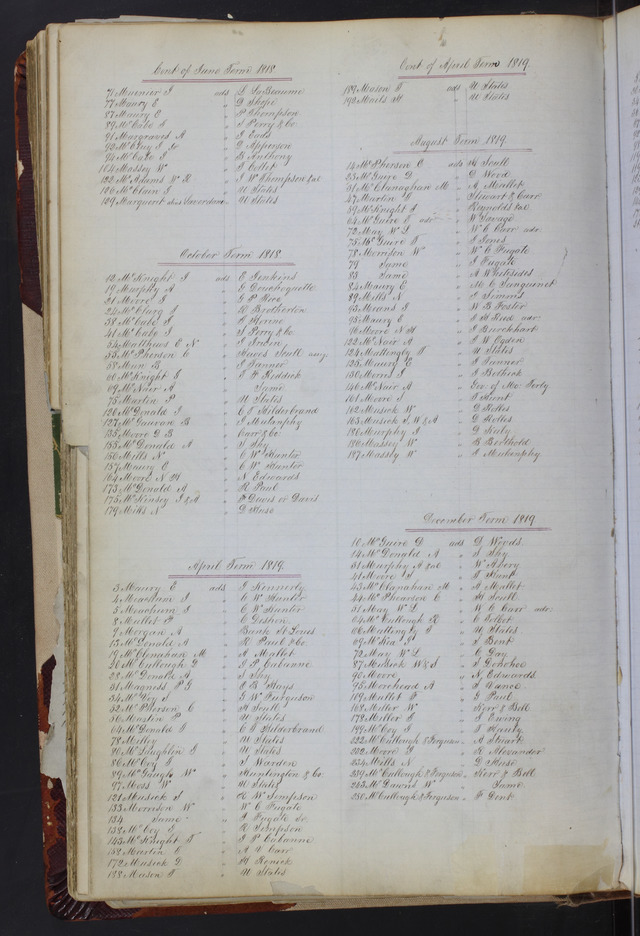 Cont of June Term 1818
71 Maunier J ads L LaBeaume
77 Maury E " D Shope
87 Maury E " P Thompson
89 McCabe J " J Perry & Co
91 Margraves A " J Eads
92 McGuy J Jr " D Apperson
94 McCabe J " B Anthony
104 Massey W " J Collet
122 McAdams W R " P W Thompson &al
126 McClain J " U States
129 Marguret " U States
October Term 1818
12 McKnight J ads E Jenkins
19 Murphy A " G Douchoquette
21 Moore J " J P Roce
24 McClurg J " R Brotherton
38 McCabe J " J Horine
41 McCabe J " J Perry & Co
54 Matthews C N " J Irwin
55 McPherson C " Reeves Scull assg
58 Mein B " J Tanner
60 McKnight E " J F Reddick
69 McNeir A " Same
75 Martin P " U States
126 McDonald J " C F Hilderbrand
127 McGauran B " J Mulraphy
135 Moore D B " Carr & Co
153 McDonald A " J Shy
156 Mills N " C W Hunter
157 Maury E " C W Hunter
164 Moore N H " N Edwards
173 McDonald A " R Paul
175 McKinsey J &al " F Dewes or Davis
179 Mills N " D Stuse
April Term 1819
3 Maury E ads J Kennerly
4 Mawhurn J " C W Hunter
5 Mawhurn J " C W Hunter
8 Mullet P " C Gershen
9 Morgan A " Bank St Louis
15 McDonald A " R Paul & Co
17 McClanahan M " A Mallet
26 McCullough D " J P Cabanne
28 McDonald A " J Shy
31 Magness P G " J B Hays
34 McCoy J " G W Furguson
52 McPherson C " H Scull
56 Masten P " U States
64 McDonald J " C F Hilderbrand
78 Miller " U States
80 McLaughlin J " U States
86 McCoy J " J Warden
89 McGaugh W " Huntington & Co
97 Moss W " U States
121 Musick J " R W Simpson
133 Morrison W " W C Fugate
134 Same " J Fugate Sr
138 McCoy J " R Simpson
143 McKnight T " J P Cabanne
152 Masten C " A V Carr
172 Musick D " H Renick
188 Mason T " U States
Cont of April Term 1819
189 Mason T ads U States
190 Mails H " U States
August Term 1819
14 McPherson C ads H Scull
25 McGuire D " D Wood
31 McClanaghan M " A Mallet
47 Martin C " Stewart & Carr
59 McKnight J " Reynolds &al
64 McGuire E adr " W Savage
72 May W L " W C Carr adr
75 McGuire T " J Jones
78 Morrison W " W C Fugate
79 Same " J Fugate
83 Same " A Whitesides
84 Maury E " M C Sanguinet
89 Mills N " J Simons
93 Means J " W B Foster
95 Maury E " J H Reed
96 Moore N H " J Burckhart
122 McNair A " J W Ogden
124 Mattingly T " U States
125 Maury E " J Tanner
130 Morris J " J Bostick
146 McNair A " Gov of Mo Terty
161 Moore J " J Hunt
162 Musick W " D Holles
163 Musick J, W & A " D Holles
180 Murphy J " G Tuly
186 Massey W " B Berthold
187 Massey W " J Mulraphy
December Term 1819
10 McGuire D ads D Woods
14 McDonald A " J Shy
31 Murphy A &al " W Avery
41 Moore J " J Hunt
43 McClanahan M " A Mallet
44 McPhearson C " H Scull
51 May W L " W C Carr adr
64 McCullough R " C Tolbot
66 Matting T " U States
69 McKee " J Bent
72 May W L " C Gay
87 Musick W & J " J Donohoe
90 Moore " N Edwards
95 Morehead A " J Vance
119 Mallet F " G Paul
168 Miller W " Kerr & Bell
178 Miller J " J Ewing
199 McCoy J " J Hanly
222 McCullough & Ferguson " A Stuart
232 Moore G " R Alexander
234 Mills N " D Stuse
239 McCullough & Ferguson " Kerr & Bell
243 McDawns W " Same
250 McCullough & Ferguson " F Dent